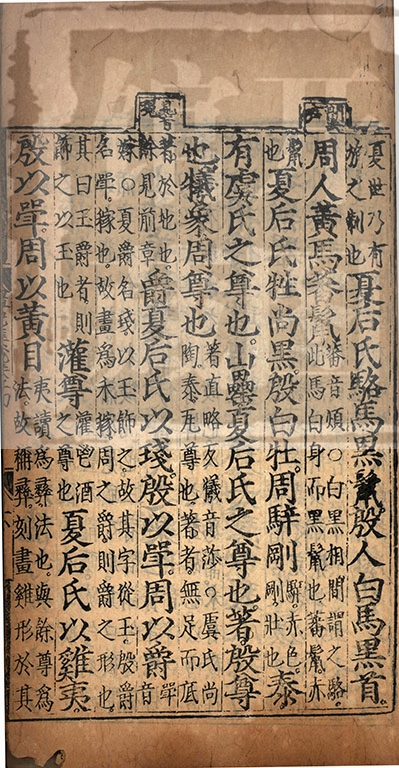 夏世乃有
旂之制也
夏后氏駱馬黑鬣。殷人白馬黑首。
周人黃馬蕃鬣
蕃音煩○白黑相間謂之駱
此馬白身而黑鬣也蕃鬣赤
鬣
也
夏后氏牲尚黑。殷白牡。周騂剛
騂赤色。
剛壯也
泰
有虞氏之尊也。山罍夏后氏之尊也。著殷尊
也。犧象周尊也
著直略反犧音莎○虞氏尚
陶泰瓦尊也著者無足而底
著於地也。
餘見前章
爵夏后氏以琖。殷以斝。周以爵
斝音
嫁○夏爵名琖以玉飾之故其字從玉殷爵
名斝稼也故畫爲禾稼周之爵則爵之形也
其曰玉爵者則
飾之以玉也
灌尊
灌鬯酒
之尊也
夏后氏以雞夷。
殷以斝。周以黃目
夷讀爲彝法也與餘尊爲
法故稱彝刻畫雞形於其